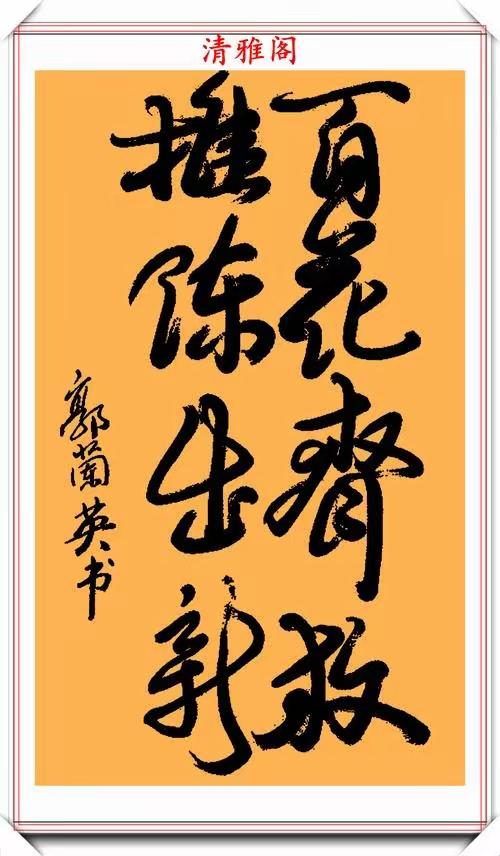 清雅阁
百花齊放
推陈出新
郭蘭英书